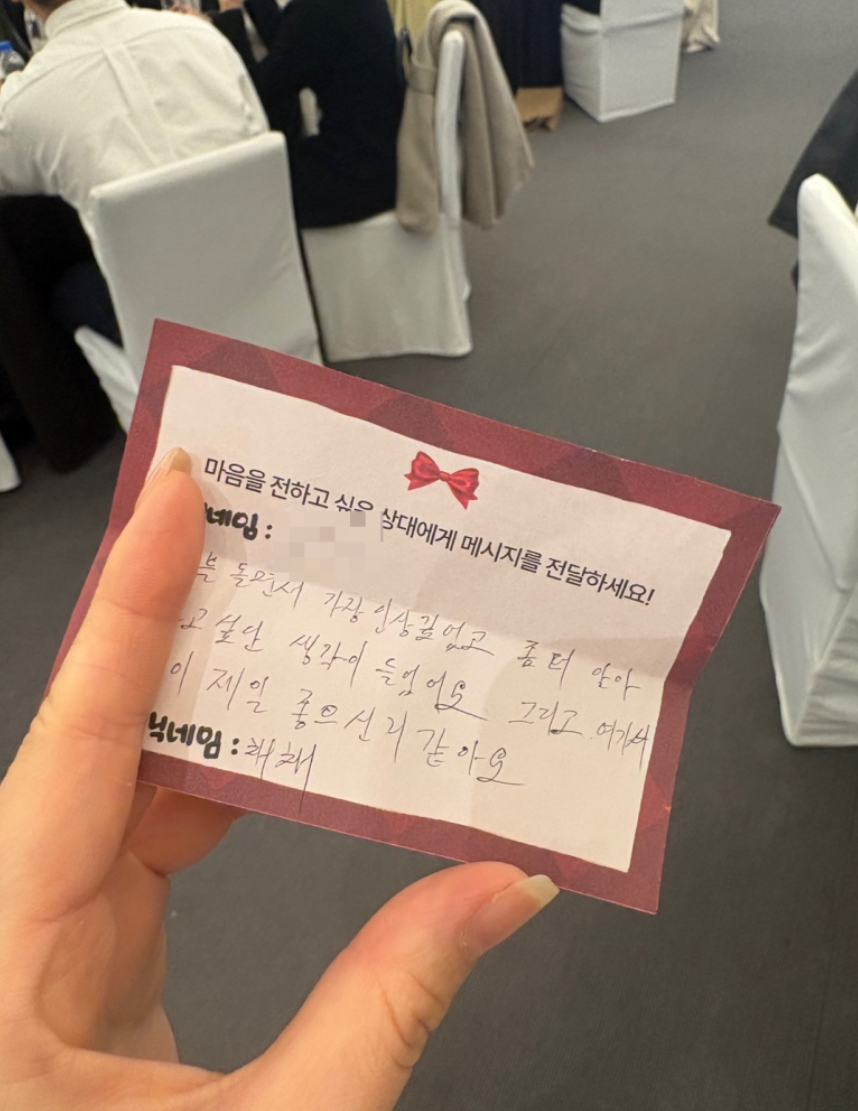 마음을 전하고 싶은 상대에게 메시지를 전달하세요!
네임 :
돌면서 가장 인상깊었고 좀더 알아
고싶단 생각이 들었어요 그리고 여기서
이 제일 좋으신거같아요
닉네임 : 채채